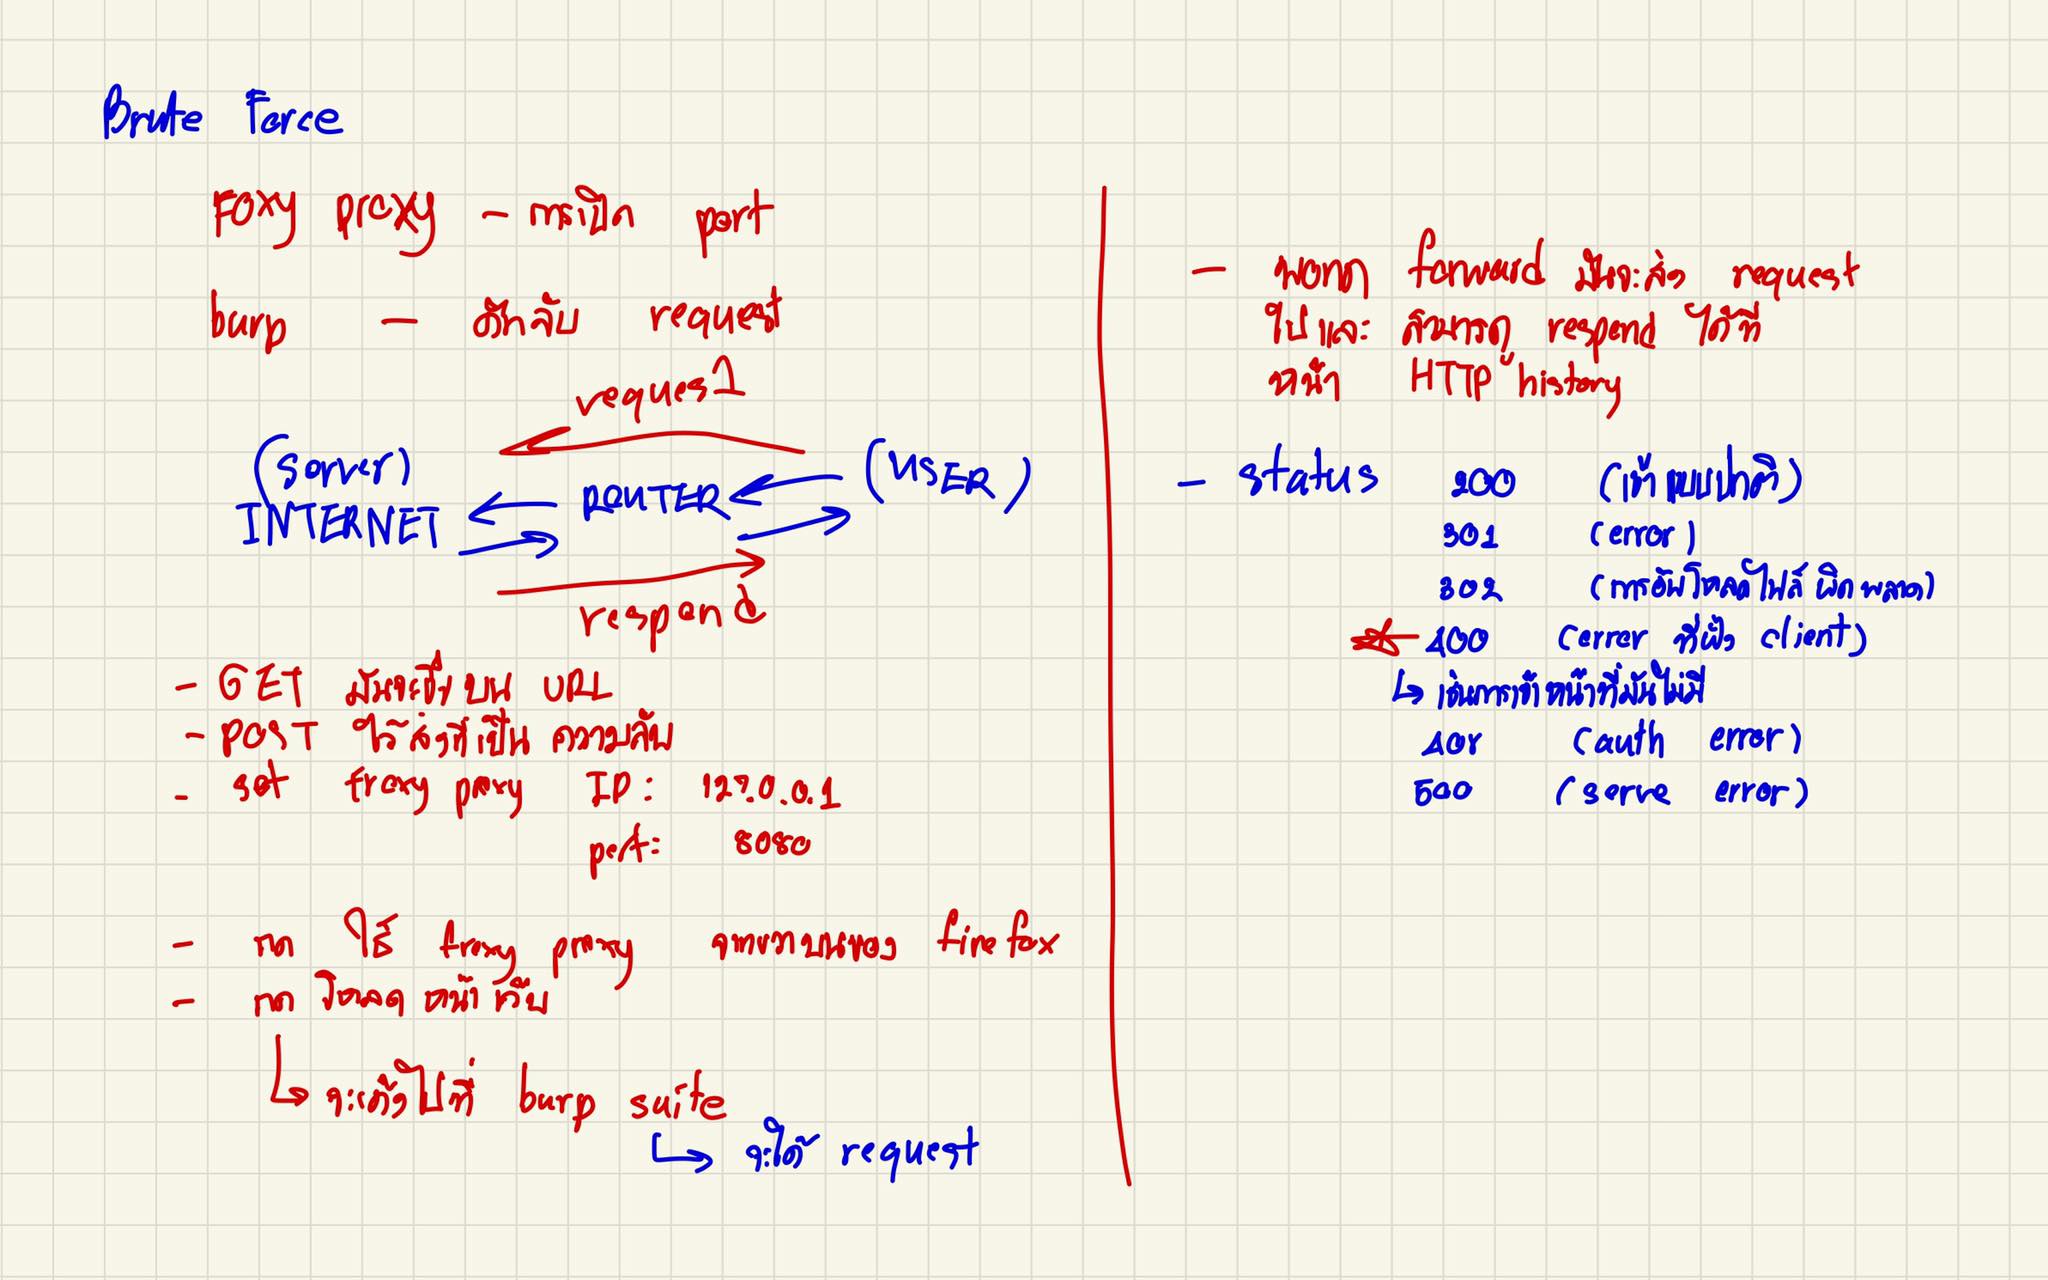 Brute Force
Foxy proxy - การเปิด port
burp - ดักจับ request
request
(server)
INTERNET
ROUTER
(USER)
respond
- GET มันจะขึ้น บน URL
- POST ไว้ส่งที่เป็น ความลับ
- set froxy proxy IP: 127.0.0.1
port: 8080
- กด ใช้ froxy proxy จากขวาบนของ firefox
- กด โหลด หน้าเว็บ
↳ จะเด้งไปที่ burp suite
↳ จะได้ request
- พอกด forward มันจะส่ง request
ไปและ สามารถดู respond ได้ที่
หน้า HTTP history
- status 200 (เข้าแบบปกติ)
301 (error)
302 (การอัพโหลดไฟล์ ผิดพลาด)
400 (error ที่ฝั่ง client)
↳ เช่นการเข้าหน้าที่มันไม่มี
(auth error)
500 (serve error)